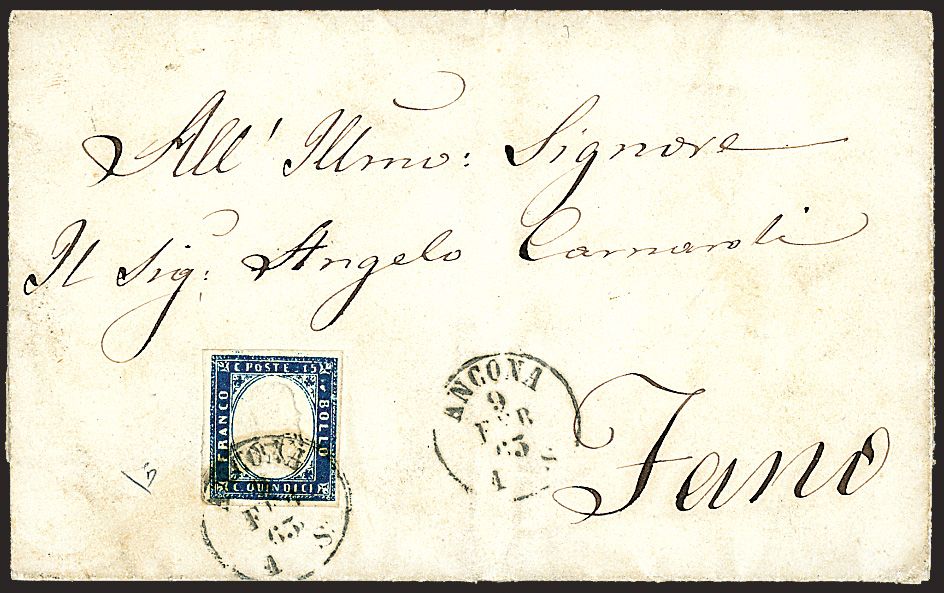 All' Illmo: Signore
Il Sig: Angelo Camaroti
C. POSTE. 15
FRANCO
BOLLO
C. QUINDICI
ANCONA
9
FEB
63
1 S
FEB
63
1 S.
Fano